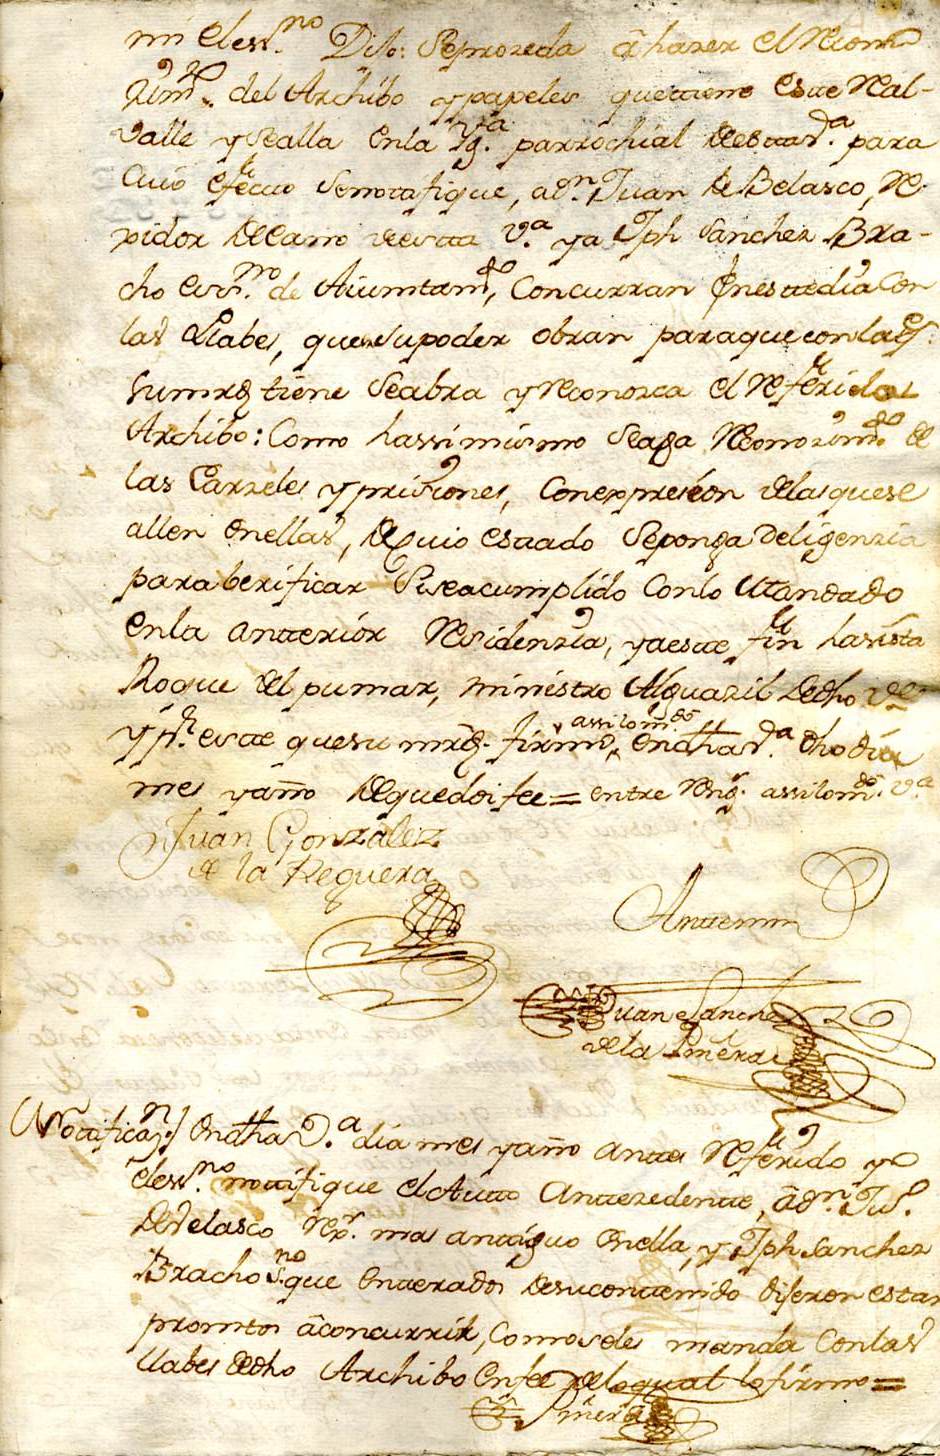 mi el ess.no Dijo: Seprozeda â hazer el Recono
zim.to del Archibo ypapeles quetiene este Real
valle ySealla enla Yg.a parrochial deesta d.a para
Cuio efecto Senotifique, aD.n Juan de Belasco, Re-
xidor Decano deesta v.a ya Jph Sanchez Bra-
cho ess.no de Aiuntam.to, Concurran enestedia Con
las Llabes, queensupoder obran paraqueconlaq.e
sumrd tiene Seabra yreconozca el referido
Archibo: Como hassimismo Seaga Reconozim.to de
las Carzeles yprisiones, Conexpresion delasquese
allen enellas, decuio estado Seponga Deligenzia
paraberificar Siseacumplido Conlo Mandado
enla antterior Residenzia, yaeste fin hasista
Roque del pumar, ministro Alguazil Dedho v.e
yp.r este quesu mrd. firmò, assilom.dò endhav.a dho dia
mes yaño Dequedoifee = entre Reng.s assilom.dò. v.a
Juan Gonzalez
de la Reguera
Anttemi
Juan Sanchez
dela Piñera
Nottificaz.n/ Endhav.a dia mes yaño antes Referido yo
eless.no nottifique elAutto Anttezedentte, âD.n Ju.o
DeVelasco rex.r mas anttiguo enella, yJph Sanchez
Bracho S.no que Entterados Desucontenido dijeron estar
promtos âconcurrir, Comoseles manda Conlas
llabes dedho Archibo Enfee deloqual lofirmo =
Piñera